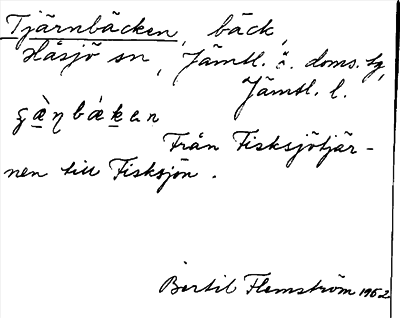 Tjärnbäcken, bäck,
Håsjö sn, Jämtl. ö. doms. tg,
Jämtl. l.
Från Fisksjötjär-
nen till Fisksjön.
Bertil Flemström 1952